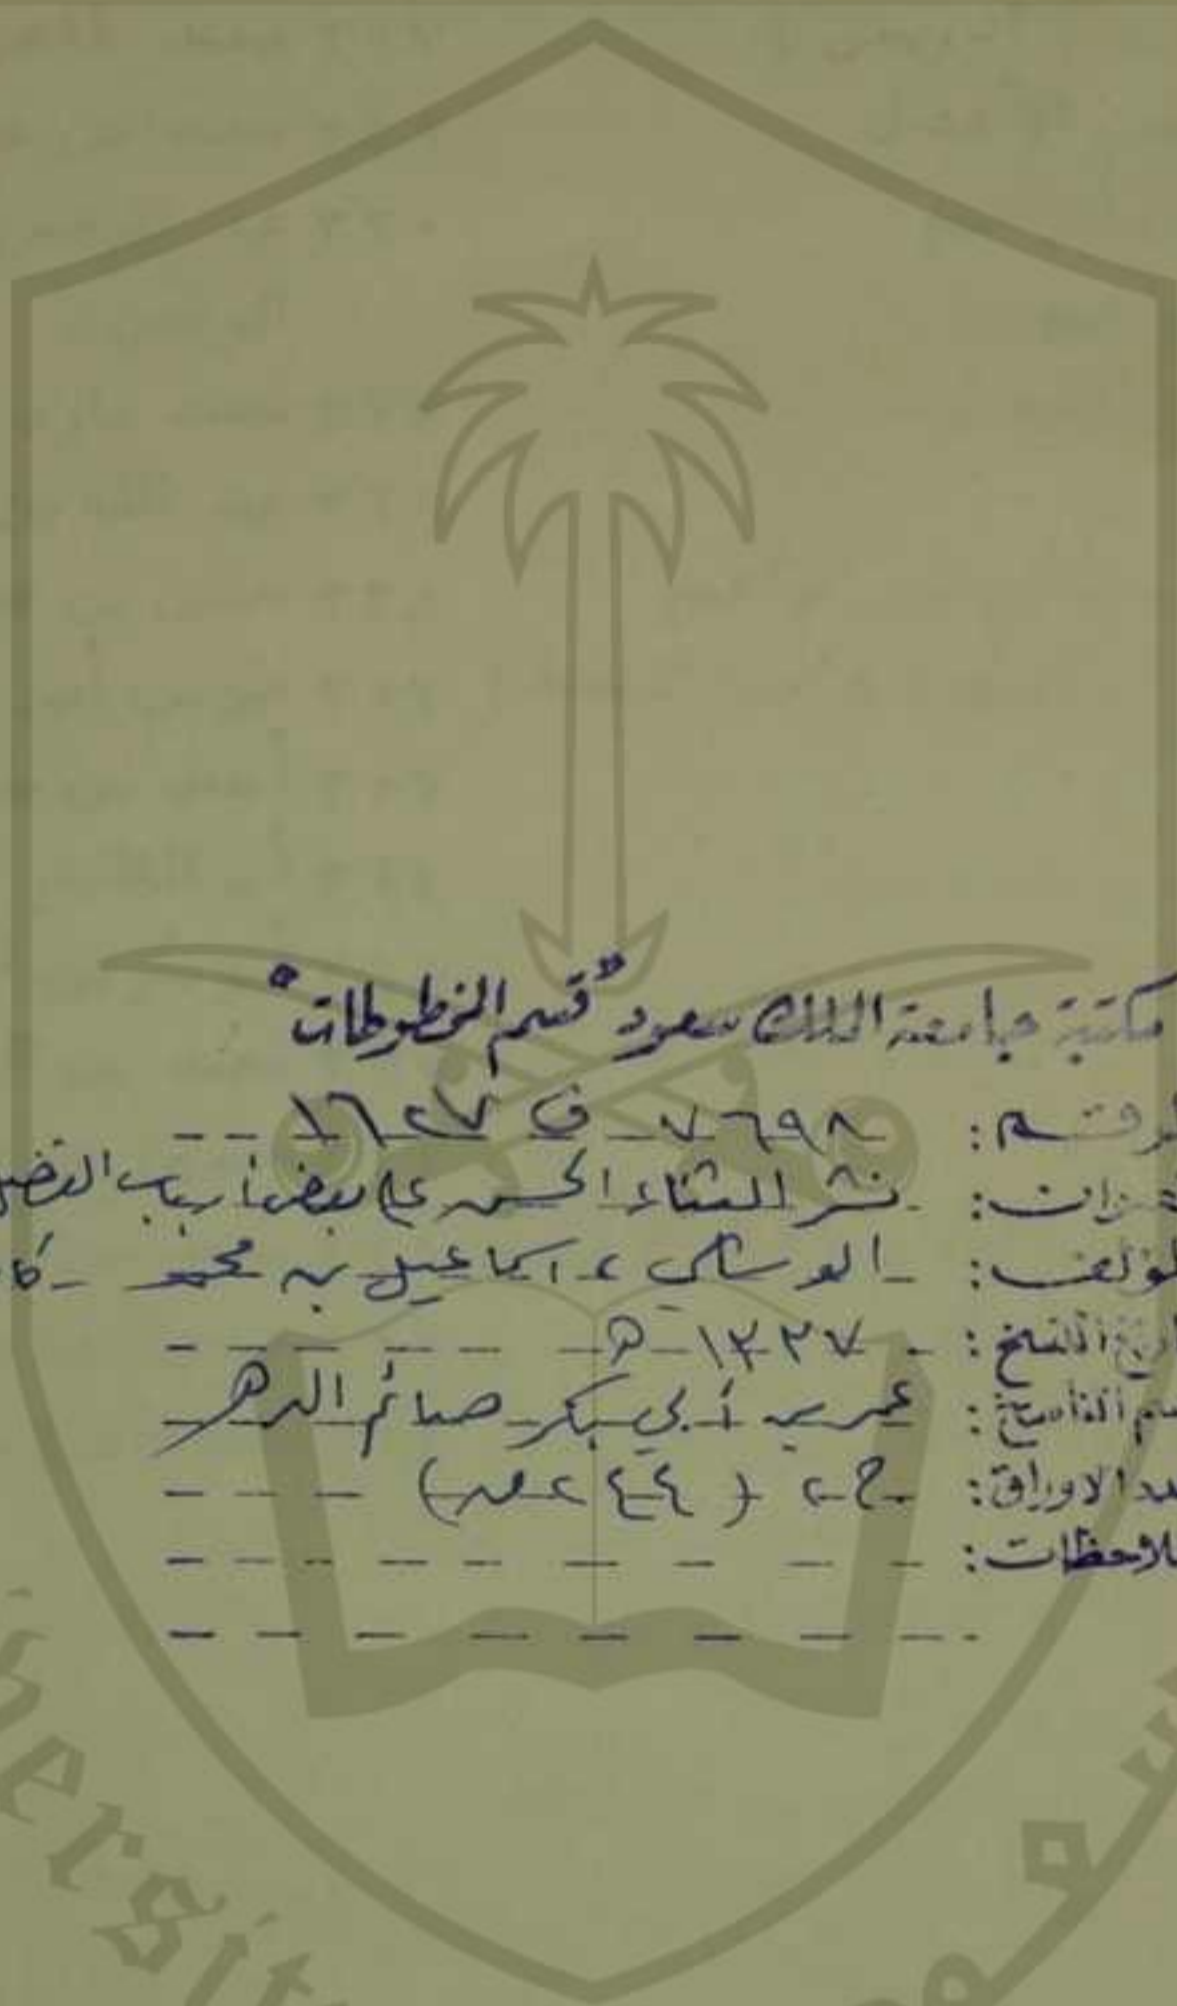 مكتبة جامعة الملك سعود "قسم المخطوطات"
الرقم: ٧٦٩٨ ف ١٦٢٧
العنوان: نشر الثناء الحسن على بعض أرباب الفضل
المؤلف: الوشلي، اسماعيل بن محمد
تاريخ النسخ: ١٣٣٧ هـ
اسم الناسخ: عمر بن أبي بكر صائم الدهر
عدد الاوراق: ج ٢ (٢٤٤ ص)
ملاحظات: